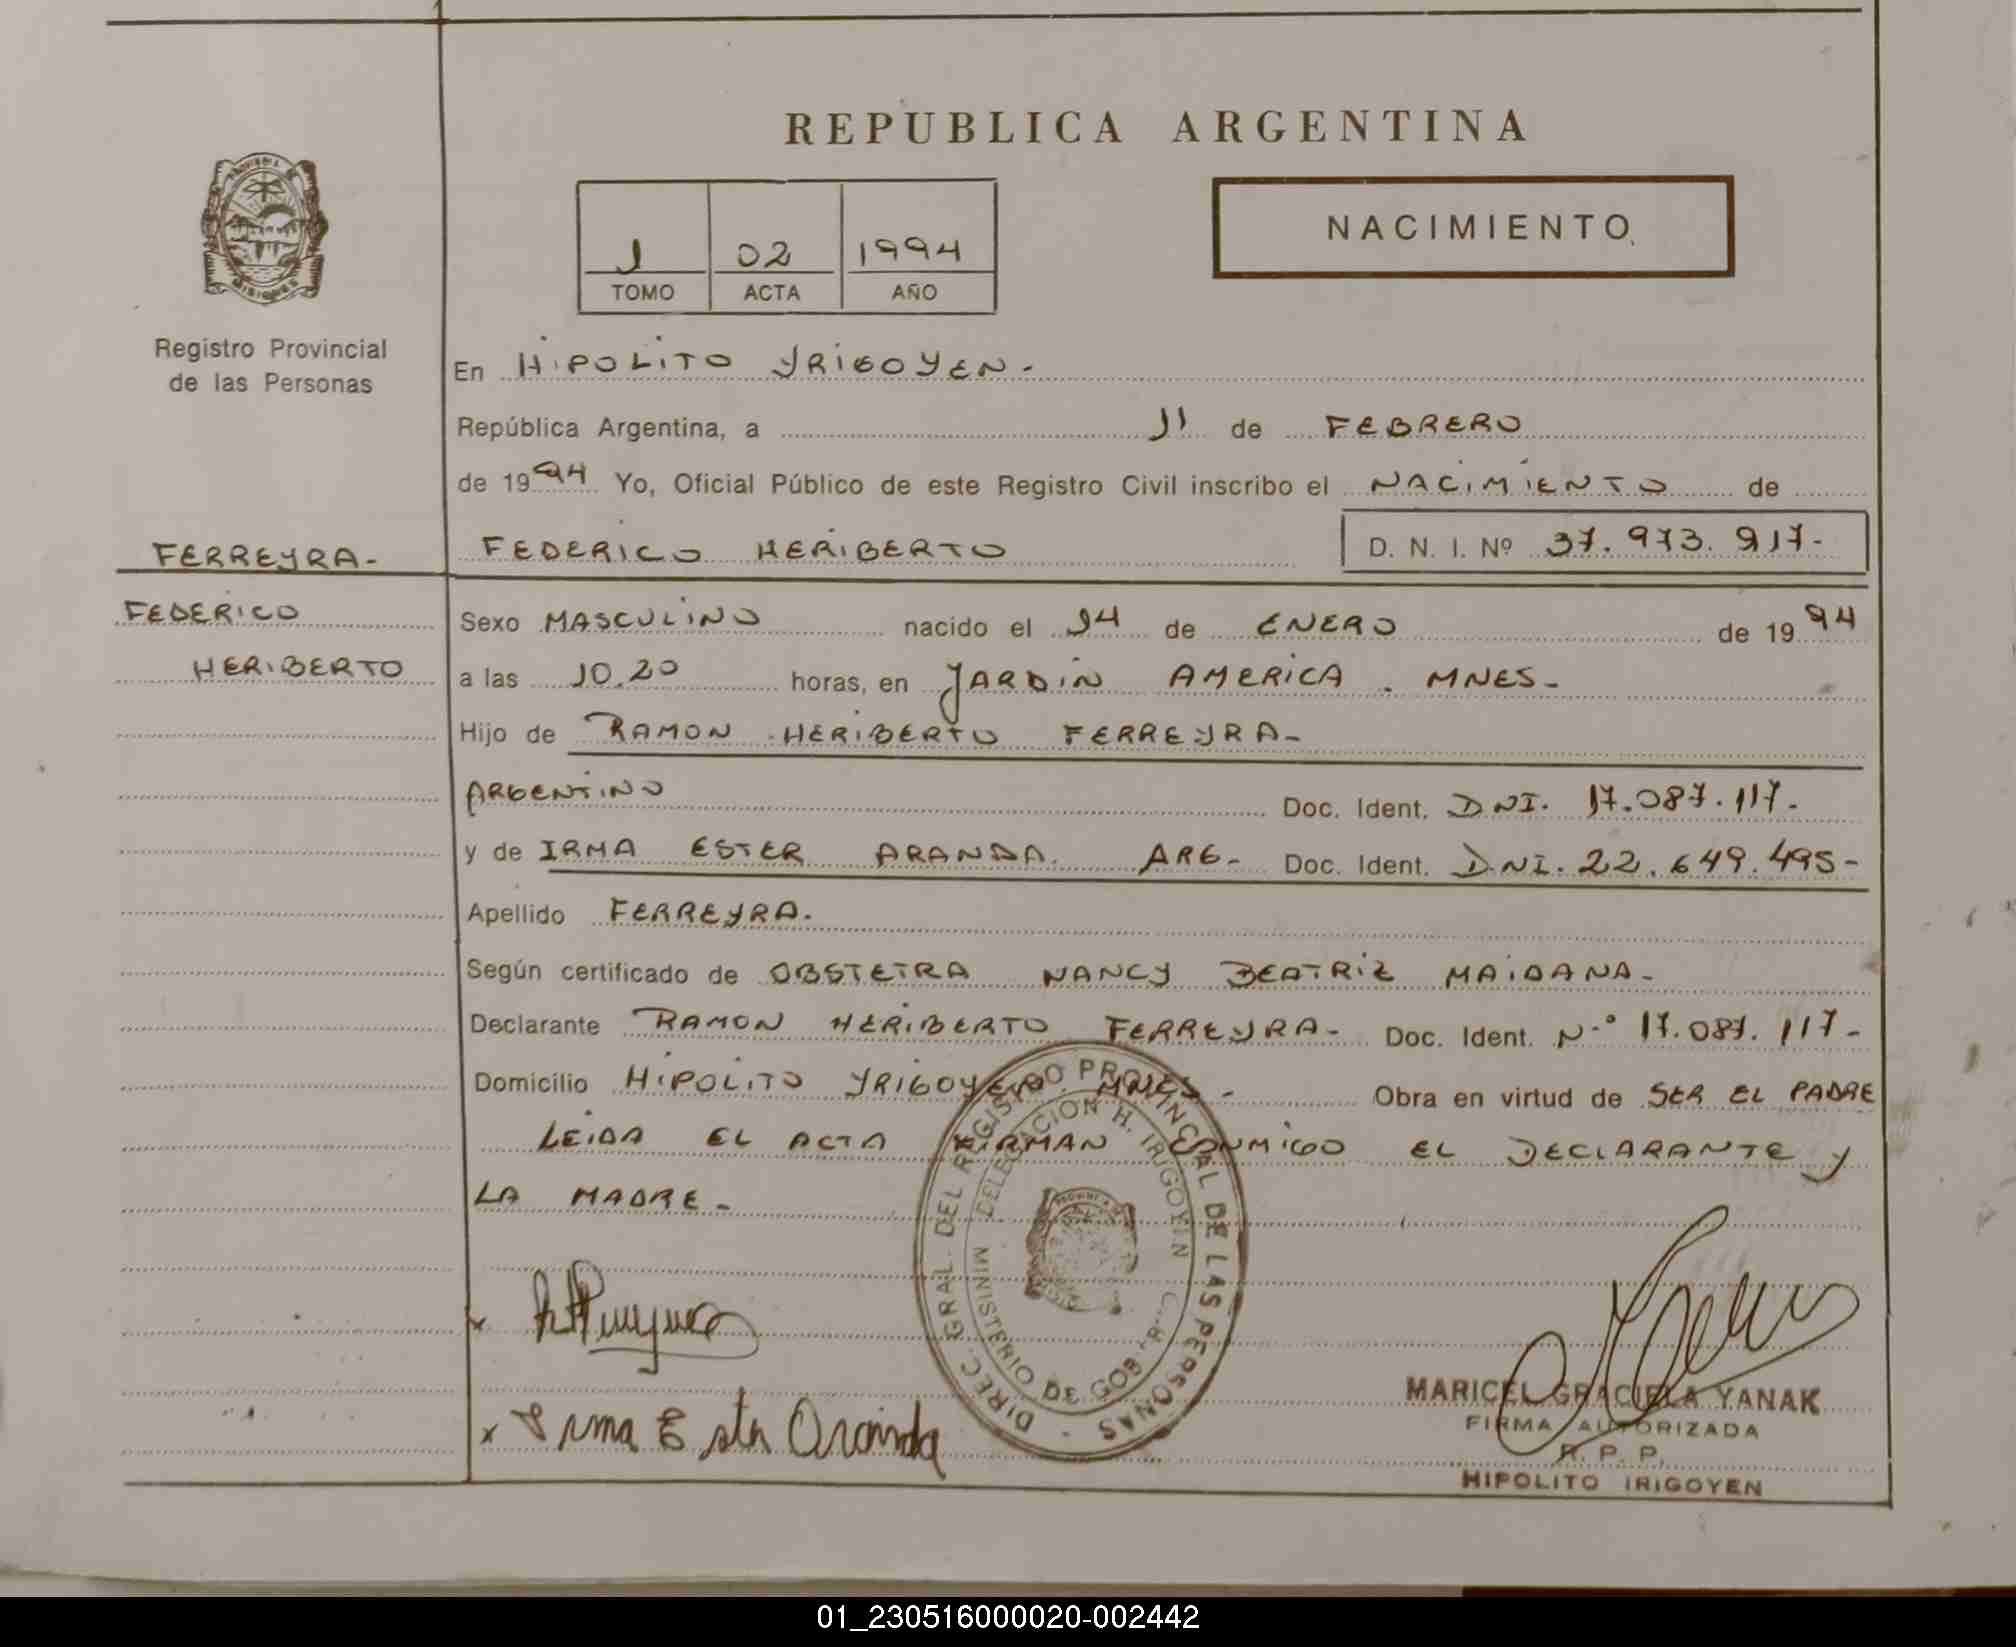 REPUBLICA ARGENTINA
NACIMIENTO
1 02 1994
TOMO ACTA AÑO
Registro Provincial
de las Personas
En HIPOLITO YRIGOYEN.-
República Argentina, a 11 de FEBRERO
de 1994 Yo, Oficial Público de este Registro Civil inscribo el NACIMIENTO de
FERREYRA- FEDERICO HERIBERTO D. N. I. Nº 37.973.917-
FEDERICO
HERIBERTO
Sexo MASCULINO nacido el 14 de ENERO de 1994
a las 10.20 horas, en JARDIN AMERICA. MNES-
Hijo de RAMON HERIBERTO FERREYRA-
ARGENTINO Doc. Ident. DNI. 17.087.117-
y de IRMA ESTER ARANDA. ARG- Doc. Ident. DNI. 22.649.495-
Apellido FERREYRA.
Según certificado de OBSTETRA NANCY BEATRIZ MAIDANA-
Declarante RAMON HERIBERTO FERREYRA- Doc. Ident. N-º 17.087.117-
Domicilio HIPOLITO YRIGOYEN. MNES- Obra en virtud de SER EL PADRE
LEIDA EL ACTA FIRMAN CONMIGO EL DECLARANTE Y
LA MADRE-
DIREC. GRAL. DEL REGISTRO PROVINCIAL DE LAS PERSONAS -
DELEGACION H. IRIGOYEN
MINISTERIO DE GOB.
PROVINCIA
x
x Irma Ester Aranda
MARICEL GRACIELA YANAK
FIRMA AUTORIZADA
R. P. P.
HIPOLITO IRIGOYEN
01_230516000020-002442